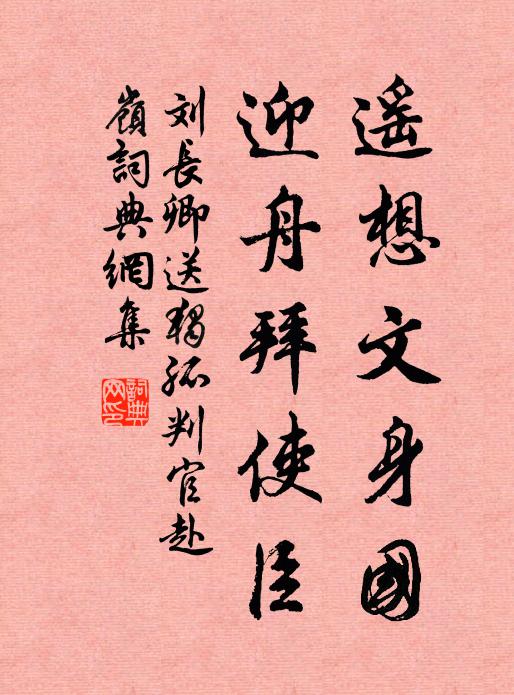 遥想文身國
迎舟拜使臣
刘長卿送獨孤判官赴
嶺詞典網集
詞典
网印